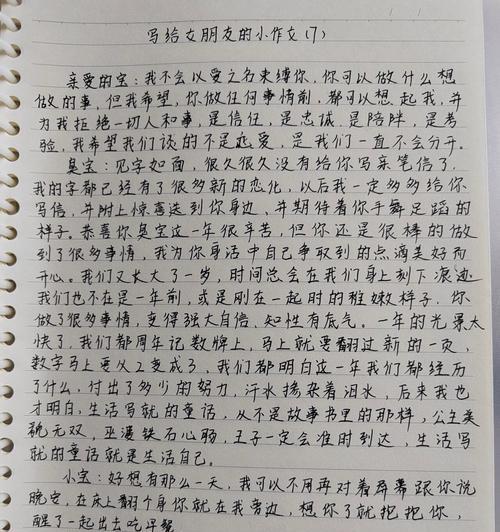 写给女朋友的小作文(7)
亲爱的宝:我不会以爱之名束缚你,你可以做什么想
做的事,但我希望,你做任何事情前,都可以想起我,并
为我拒绝一切人和事,是信任,是忠诚.是陪伴,是考
验,我希望我们谈的不是恋爱,是我们一直不会分开。
臭宝:见字如面,很久很久没有给你写亲笔信了,
我的字都已经有了很多新的变化,以后我一定多多给你
写信,并附上惊喜送到你身边、并期待着你手舞足蹈的
样子。恭喜你臭宝这一年很辛苦,但你还是很棒的做
到了很多事情,我为你身活中自己争取到的点滴美好而
开心。我们又长大了一岁,时间总会在我们身上刻下痕迹
我们也不在是一年前,或是刚在一起时的稚嫩样子.你
做了很多事情,变得强大自信、知性有底气。一年的光景太
快了,我们都周年记数牌上,马上就要翻过新的一页,
数字马上要从2变成了,我们都明白这一年我们都经历
了什么,付出了多少的努力,汗水掺杂着泪水,后来我也
才明白,生活写就的童话,从不是故事书里的那样,公主美
貌无双,巫婆铁石心肠,王子一定会准时到达,生活写
就的童话就是生活自己。
小宝:好想有那么一天,我可以不用再对着屏幕跟你说
晚安,在床上翻个身你就在我旁边,想你了就抱抱你,
醒了一起出去吃早餐